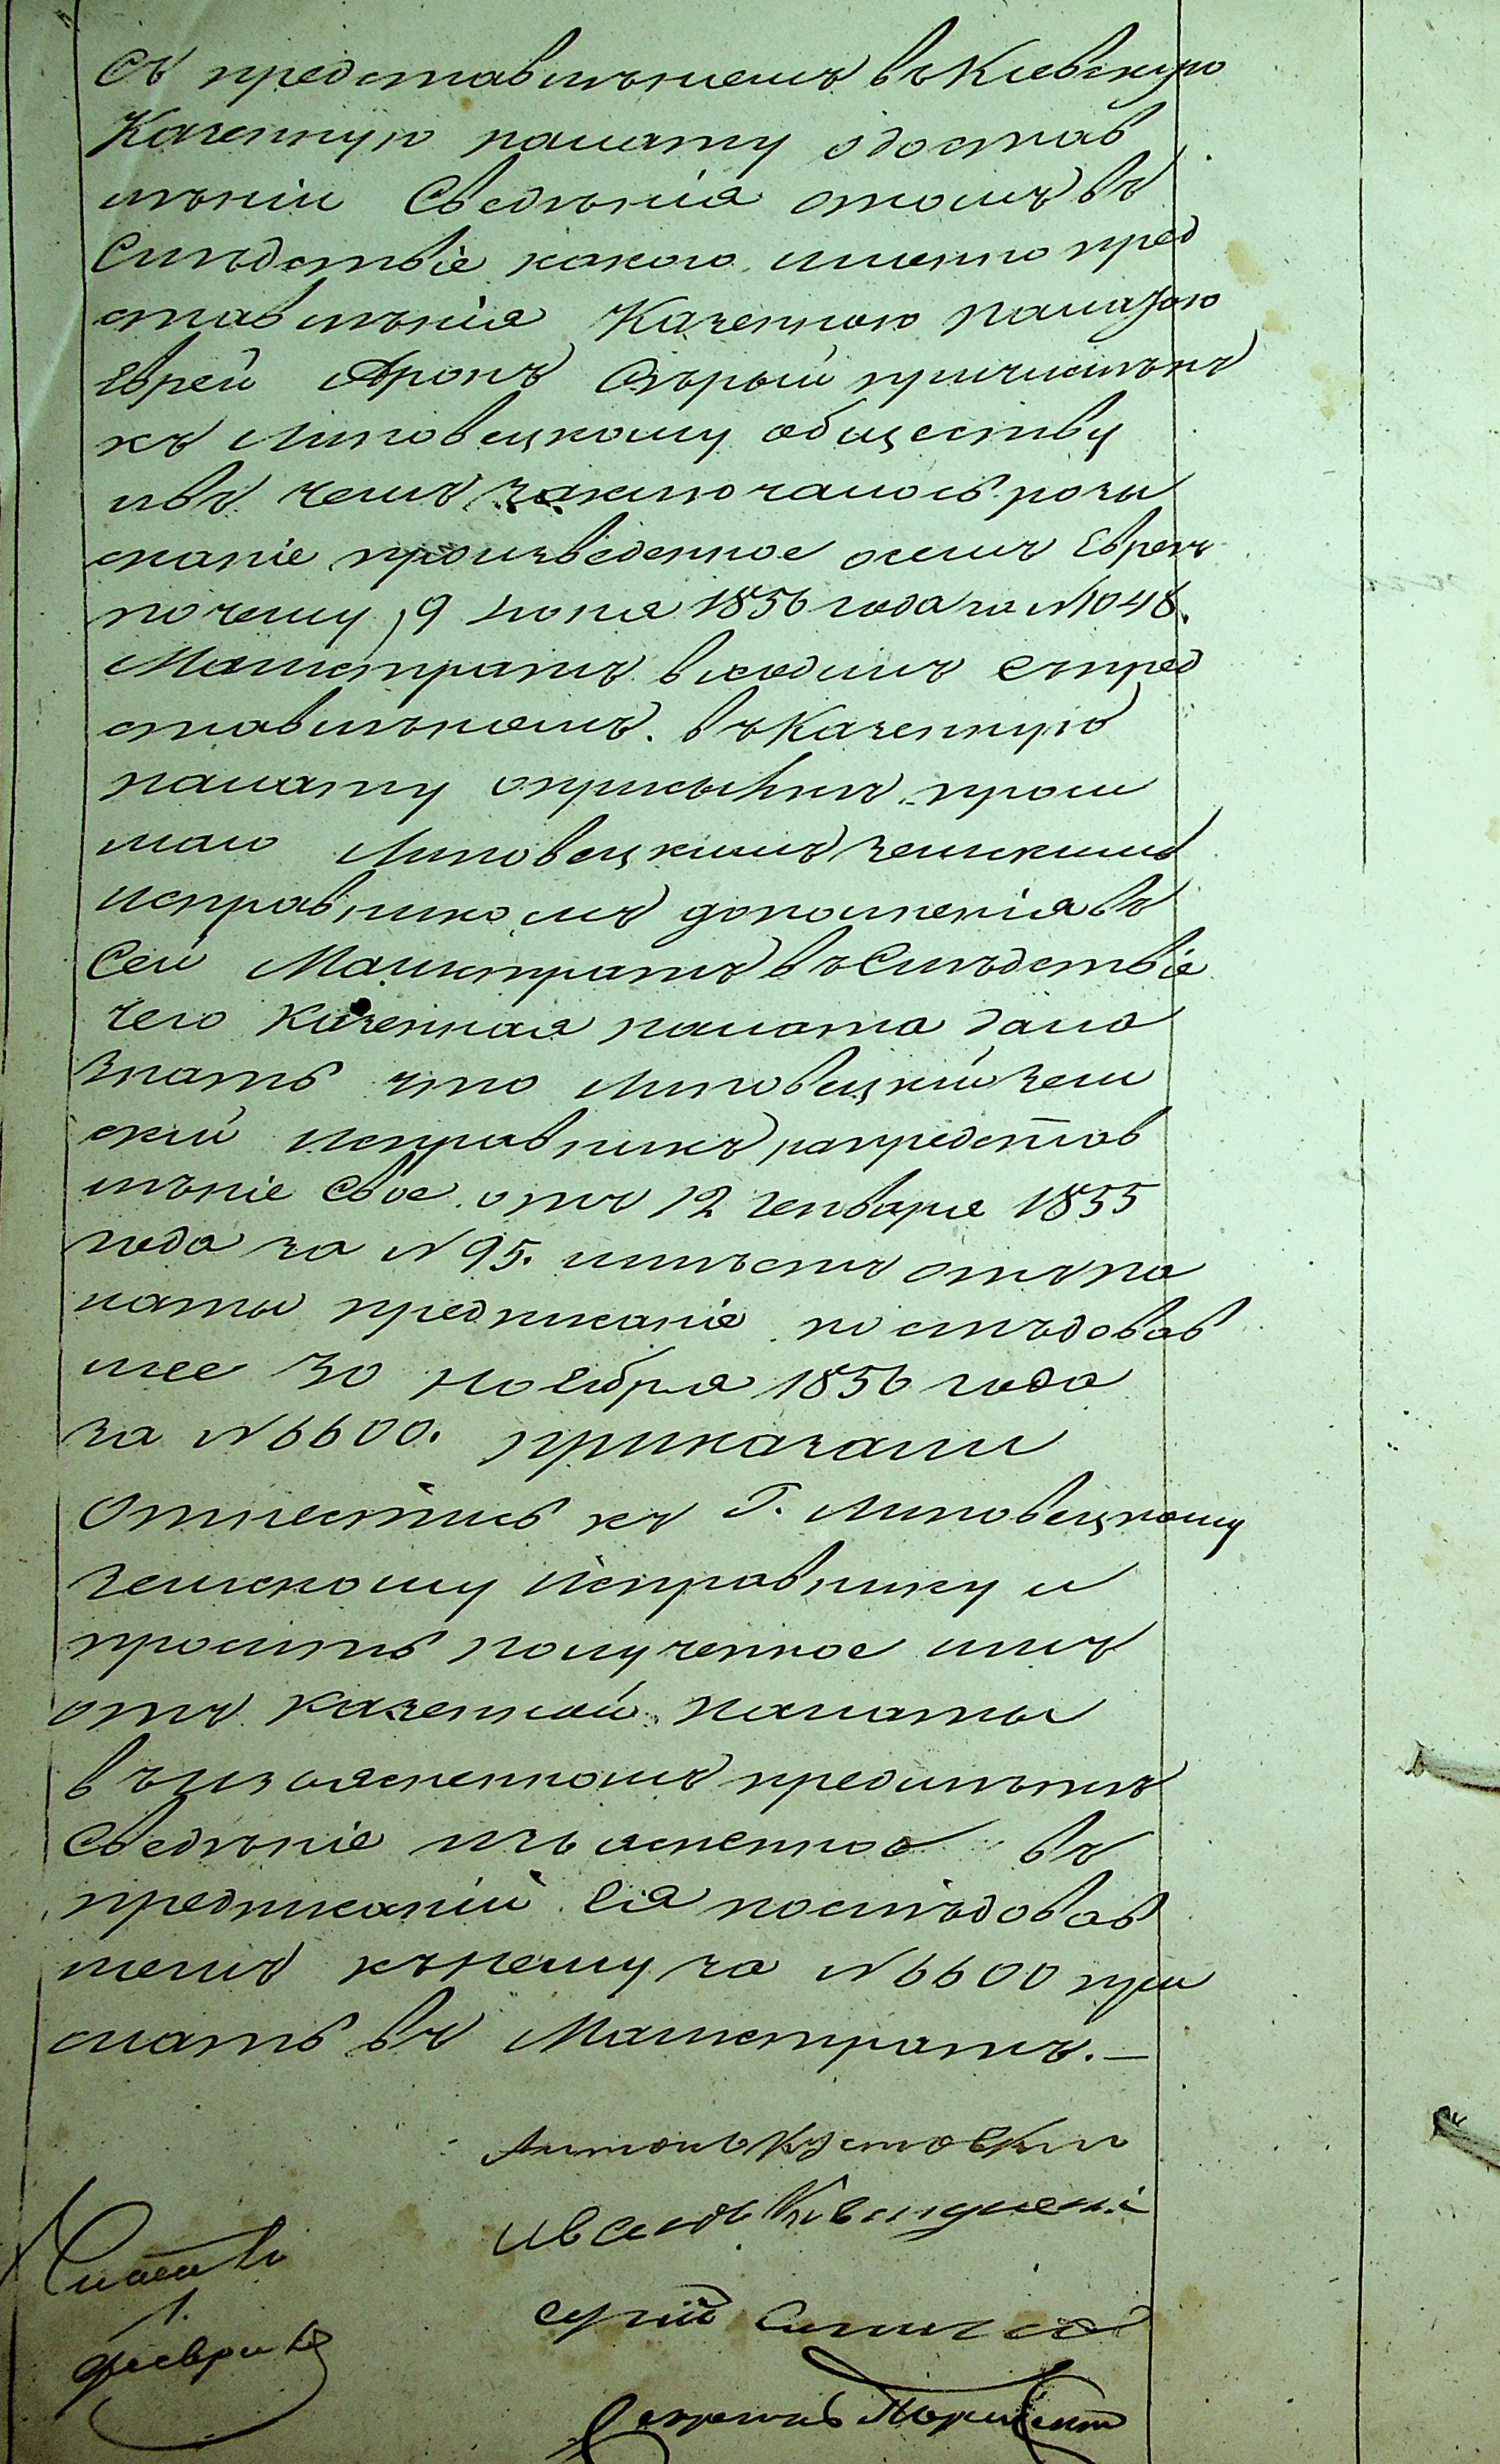 съ представлѣніемъ въ Кіевскую
Казенную палату о достав
лѣніи Сведѣнія отомъ въ
Слѣдствіе какого именно пред
ставлѣнія Казенною палатою
еврей Аронъ Сѣрый причислѣнъ
къ Липовецкому обществу
ивъ чемъ заключалось розы
сканіе произведенное осемъ Евреѣ
почему, 9 Іюня 1856 года за N 1048.
Магистратъ входилъ съ пред
ставлѣніемъ. въ Казенную
палату оприсылкѣ. прош
лаго Липовецкимъ земскимъ
исправникомъ дополненія въ
Сей Магистратъ въ Слѣдствіе
чего Казенная палата дала
знать что Липовецкій зем
скій исправникъ напредстав
лѣніе свое отъ 12 генваря 1855
года за N 95. имѣетъ отъ па
латы предписаніе последовав
шее 30 ноября 1856 года
за N 6600. приказали
Отнестись къ Г. Липовецкому
земскому исправнику и
просить полученное имъ
отъ казенной палаты
въ изъясненномъ предмѣтѣ
Сведѣніе изъясненное въ
предписаніи ея послѣдовав
шемъ къ нему за N 6600 при
слать въ Магистратъ.—
Антонъ Кустовскій
Секретарь
Читалъ
1.
февраля